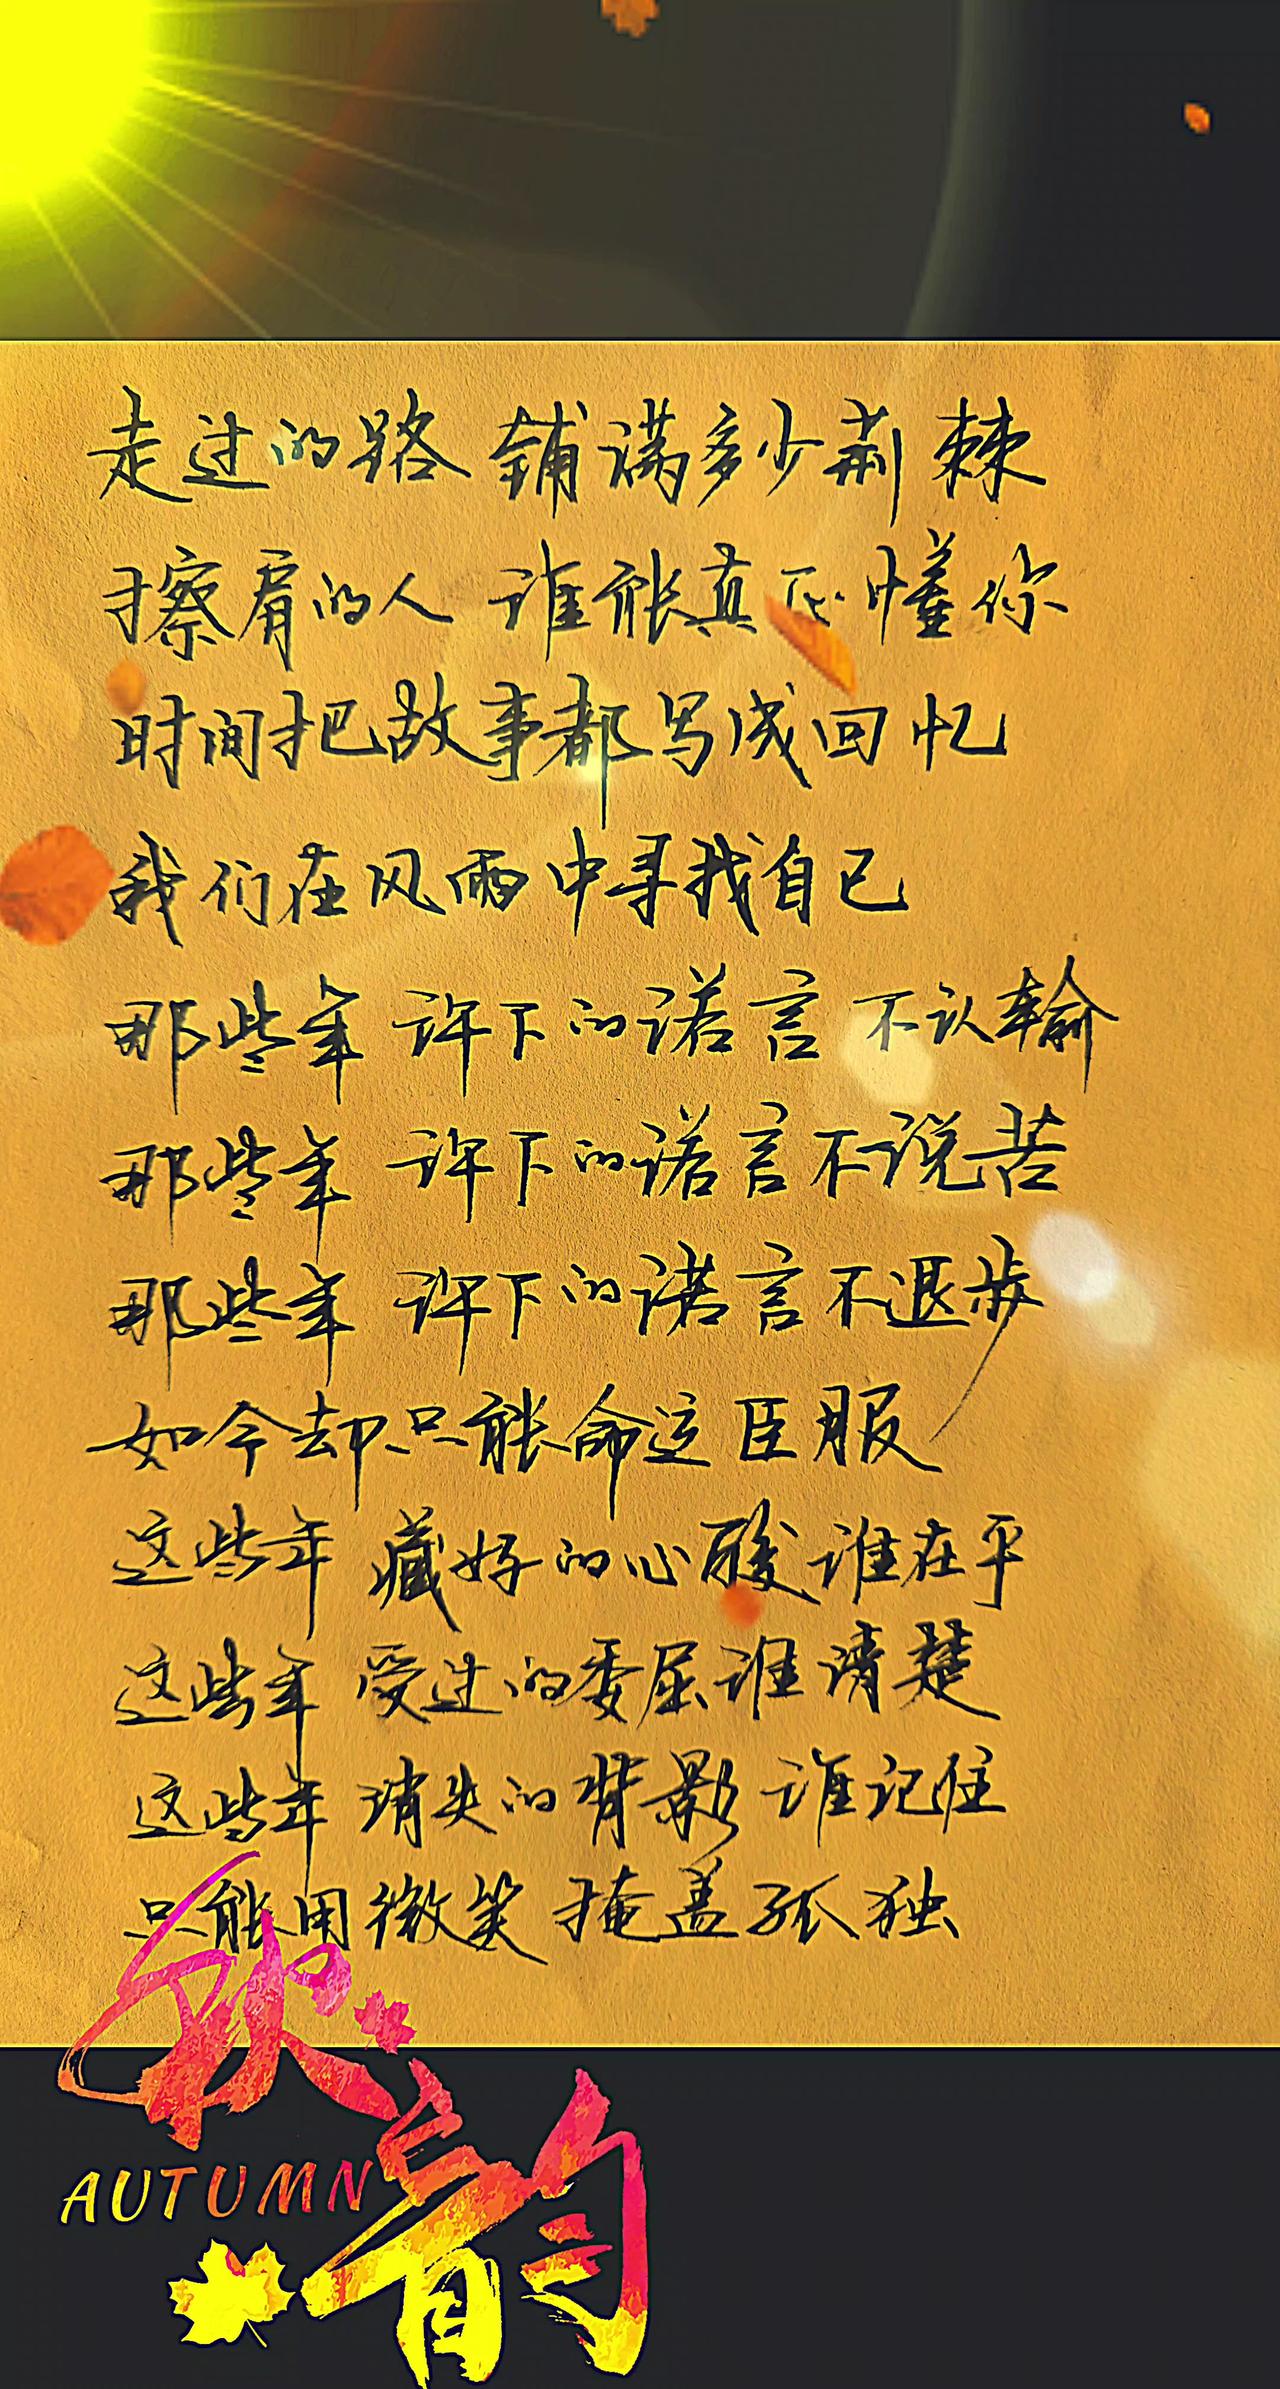 走过的路 铺满多少荆棘
擦肩的人 谁能真正懂你
时间把故事都写成回忆
我们在风雨中寻找自己
那些年 许下的诺言 不认输
那些年 许下的诺言不说苦
那些年 许下的诺言不退步
如今却只能命运臣服
这些年 藏好的心酸谁在乎
这些年 受过的委屈谁清楚
这些年 消失的背影 谁记住
只能用微笑 掩盖孤独
秋韵
AUTUMN